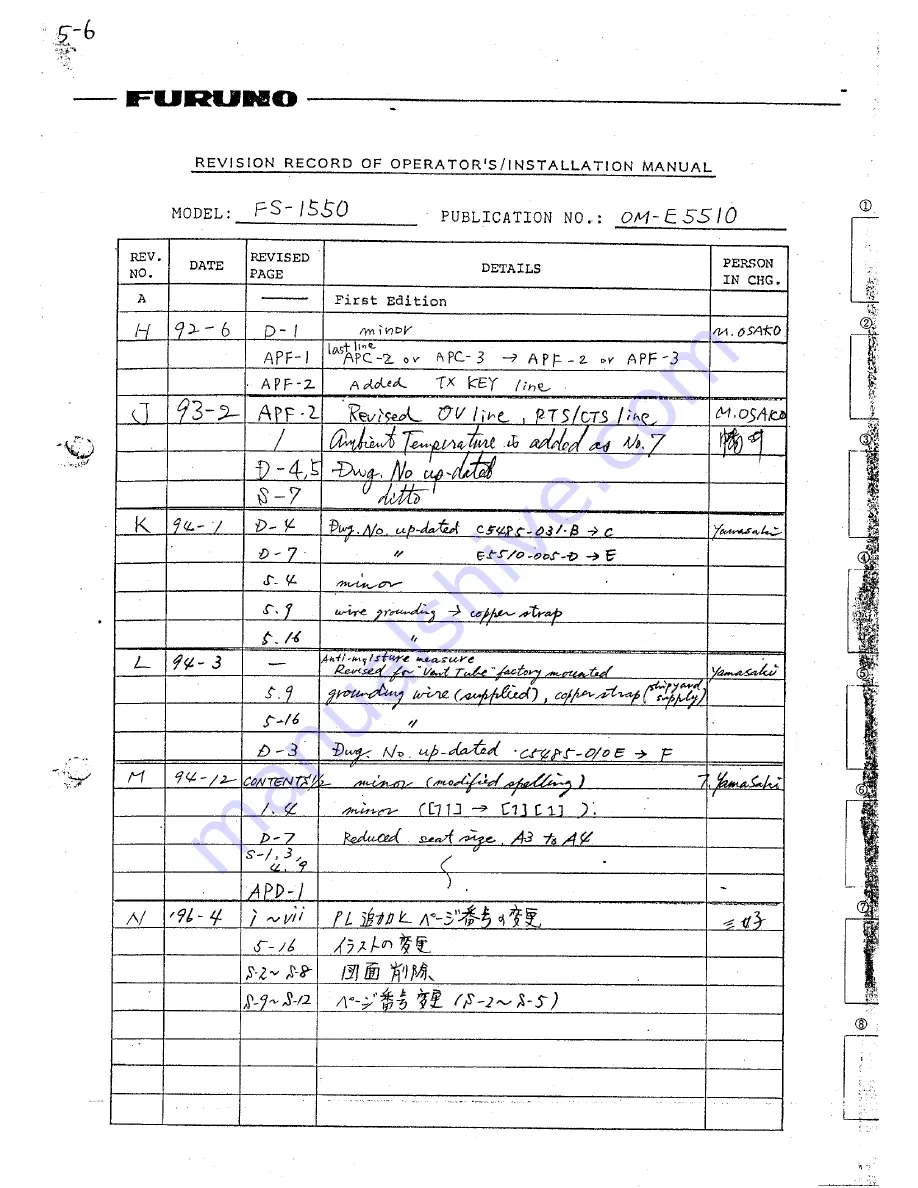 5-6
FURUNO
REVISION RECORD OF OPERATOR'S/INSTALLATION MANUAL
MODEL: FS-1550 PUBLICATION NO.: OM-E5510
REV. NO. DATE REVISED PAGE DETAILS PERSON IN CHG.
A —— First Edition
H 92-6 D-1 minor M.OSAKO
APF-1 last line APC-2 or APC-3 → APF-2 or APF-3
APF-2 Added TX KEY line
J 93-2 APF-2 Revised OV line, RTS/CTS line M.OSAKO
/ Ambient Temperature is added as No.7
D-4,5 Dwg. No up-dated
S-7 ditto
K 94-1 D-4 Dwg. No. up-dated C5485-031-B → C Yamasaki
D-7 〃 E5510-005-D → E
5.4 minor
5.9 wire grounding → copper strap
5.16 〃
L 94-3 — Anti-moisture measure Revised for "Vent Tube" factory mounted Yamasaki
5.9 grounding wire (supplied), copper strap (shipyard supply)
5-16 〃
D-3 Dwg. No. up-dated C5485-010E → F
M 94-12 CONTENTS1/2 minor (modified spelling) T.Yamasaki
1.4 minor ([11] → [1][1]).
D-7 Reduced seat size, A3 to A4
S-1,3,4,9
APD-1
N '96-4 i~vii PL追加とページ番号の変更 三好
5-16 イラストの変更
S-2~S-8 図面削除
S-9~S-12 ページ番号変更(S-2~S-5)
①
②
③
④
⑤
⑥
⑦
⑧
manualshive.com